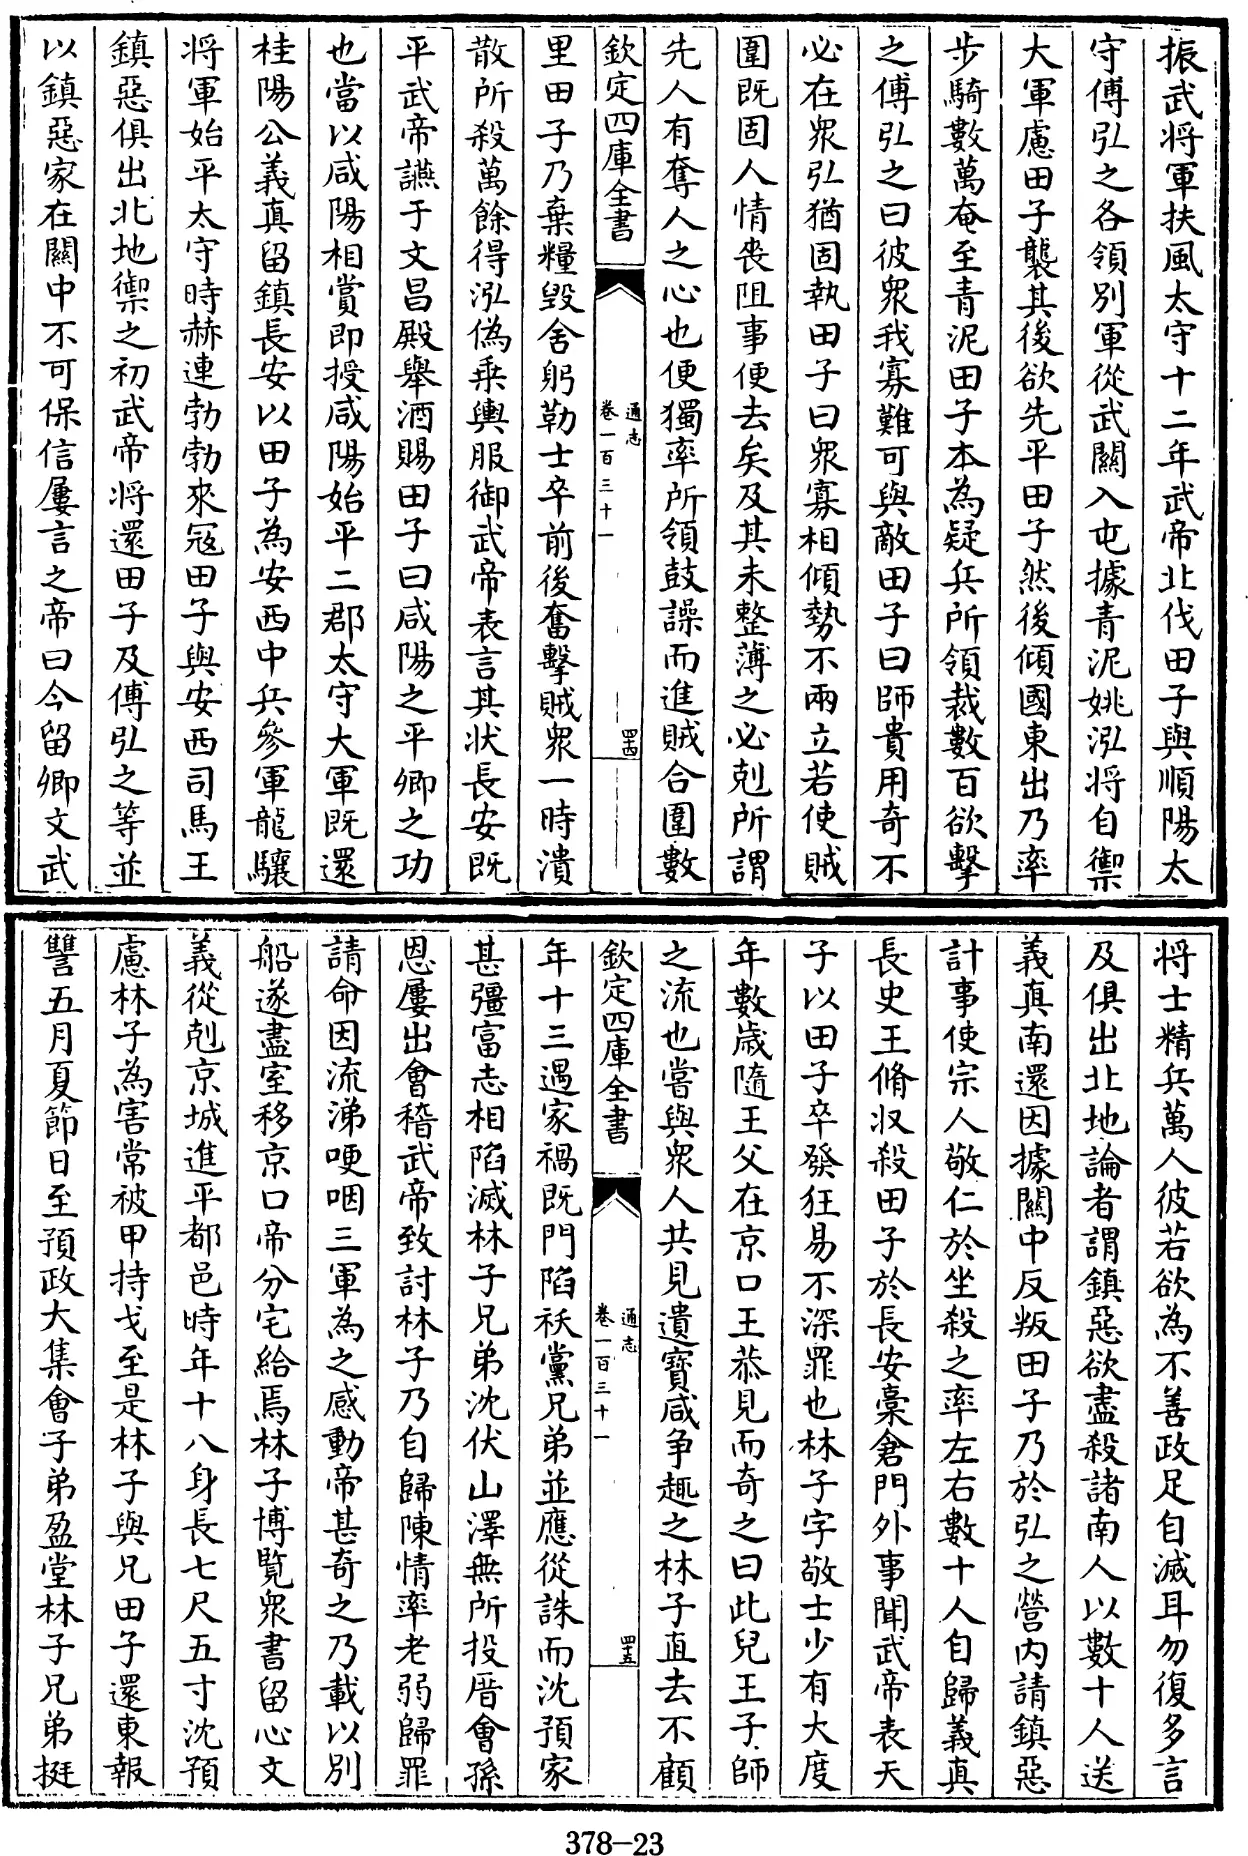 振武将軍扶風太守十二年武帝北伐田子與順陽太
守傅弘之各領別軍從武關入屯據青泥姚泓将自禦
大軍慮田子襲其後欲先平田子然後傾國東出乃率
步騎數萬奄至青泥田子本為疑兵所領裁數百欲擊
之傅弘之曰彼衆我寡難可與敵田子曰師貴用奇不
必在衆弘猶固執田子曰衆寡相傾勢不兩立若使賊
圍既固人情喪阻事便去矣及其未整薄之必剋所謂
先人有奪人之心也便獨率所領鼓譟而進賊合圍數
欽定四庫全書
通志
卷一百三十一
四十四
里田子乃棄糧毀舍躬勒士卒前後奮擊賊衆一時潰
散所殺萬餘得泓偽乘輿服御武帝表言其狀長安既
平武帝讌于文昌殿舉酒賜田子曰咸陽之平卿之功
也當以咸陽相賞即授咸陽始平二郡太守大軍既還
桂陽公義真留鎮長安以田子為安西中兵參軍龍驤
将軍始平太守時赫連勃勃來冦田子與安西司馬王
鎮惡俱出北地禦之初武帝将還田子及傅弘之等並
以鎮惡家在關中不可保信屢言之帝曰今留卿文武
将士精兵萬人彼若欲為不善政足自滅耳勿復多言
及俱出北地論者謂鎮惡欲盡殺諸南人以數十人送
義真南還因據關中反叛田子乃於弘之營内請鎮惡
計事使宗人敬仁於坐殺之率左右數十人自歸義真
長史王脩収殺田子於長安槀倉門外事聞武帝表天
子以田子卒發狂易不深罪也林子字敬士少有大度
年數歳隨王父在京口王恭見而奇之曰此兒王子師
之流也嘗與衆人共見遺寶咸争趣之林子直去不顧
欽定四庫全書
通志
卷一百三十一
四十五
年十三遇家禍既門陷祅黨兄弟並應從誅而沈預家
甚彊富志相陷滅林子兄弟沈伏山澤無所投厝會孫
恩屢出會稽武帝致討林子乃自歸陳情率老弱歸罪
請命因流涕哽咽三軍為之感動帝甚奇之乃載以別
船遂盡室移京口帝分宅給焉林子博覧衆書留心文
義從剋京城進平都邑時年十八身長七尺五寸沈預
慮林子為害常被甲持戈至是林子與兄田子還東報
讐五月夏節日至預政大集會子弟盈堂林子兄弟挺
378-23